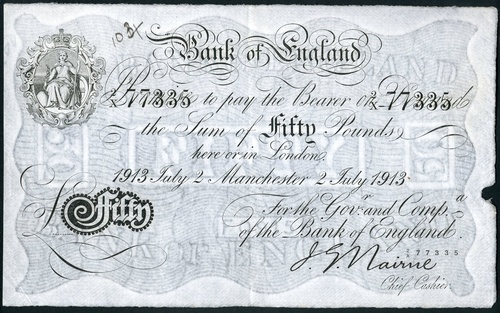 103/
Bank of England
Promise to pay the Bearer on Demand
2/X 77335 2/X 77335
the Sum of Fifty Pounds
here or in London.
1913 July 2 Manchester 2 July 1913.
For the Govr. and Compa.
of the Bank of England.
£ Fifty
J. G. Nairne
77335
Chief Cashier.